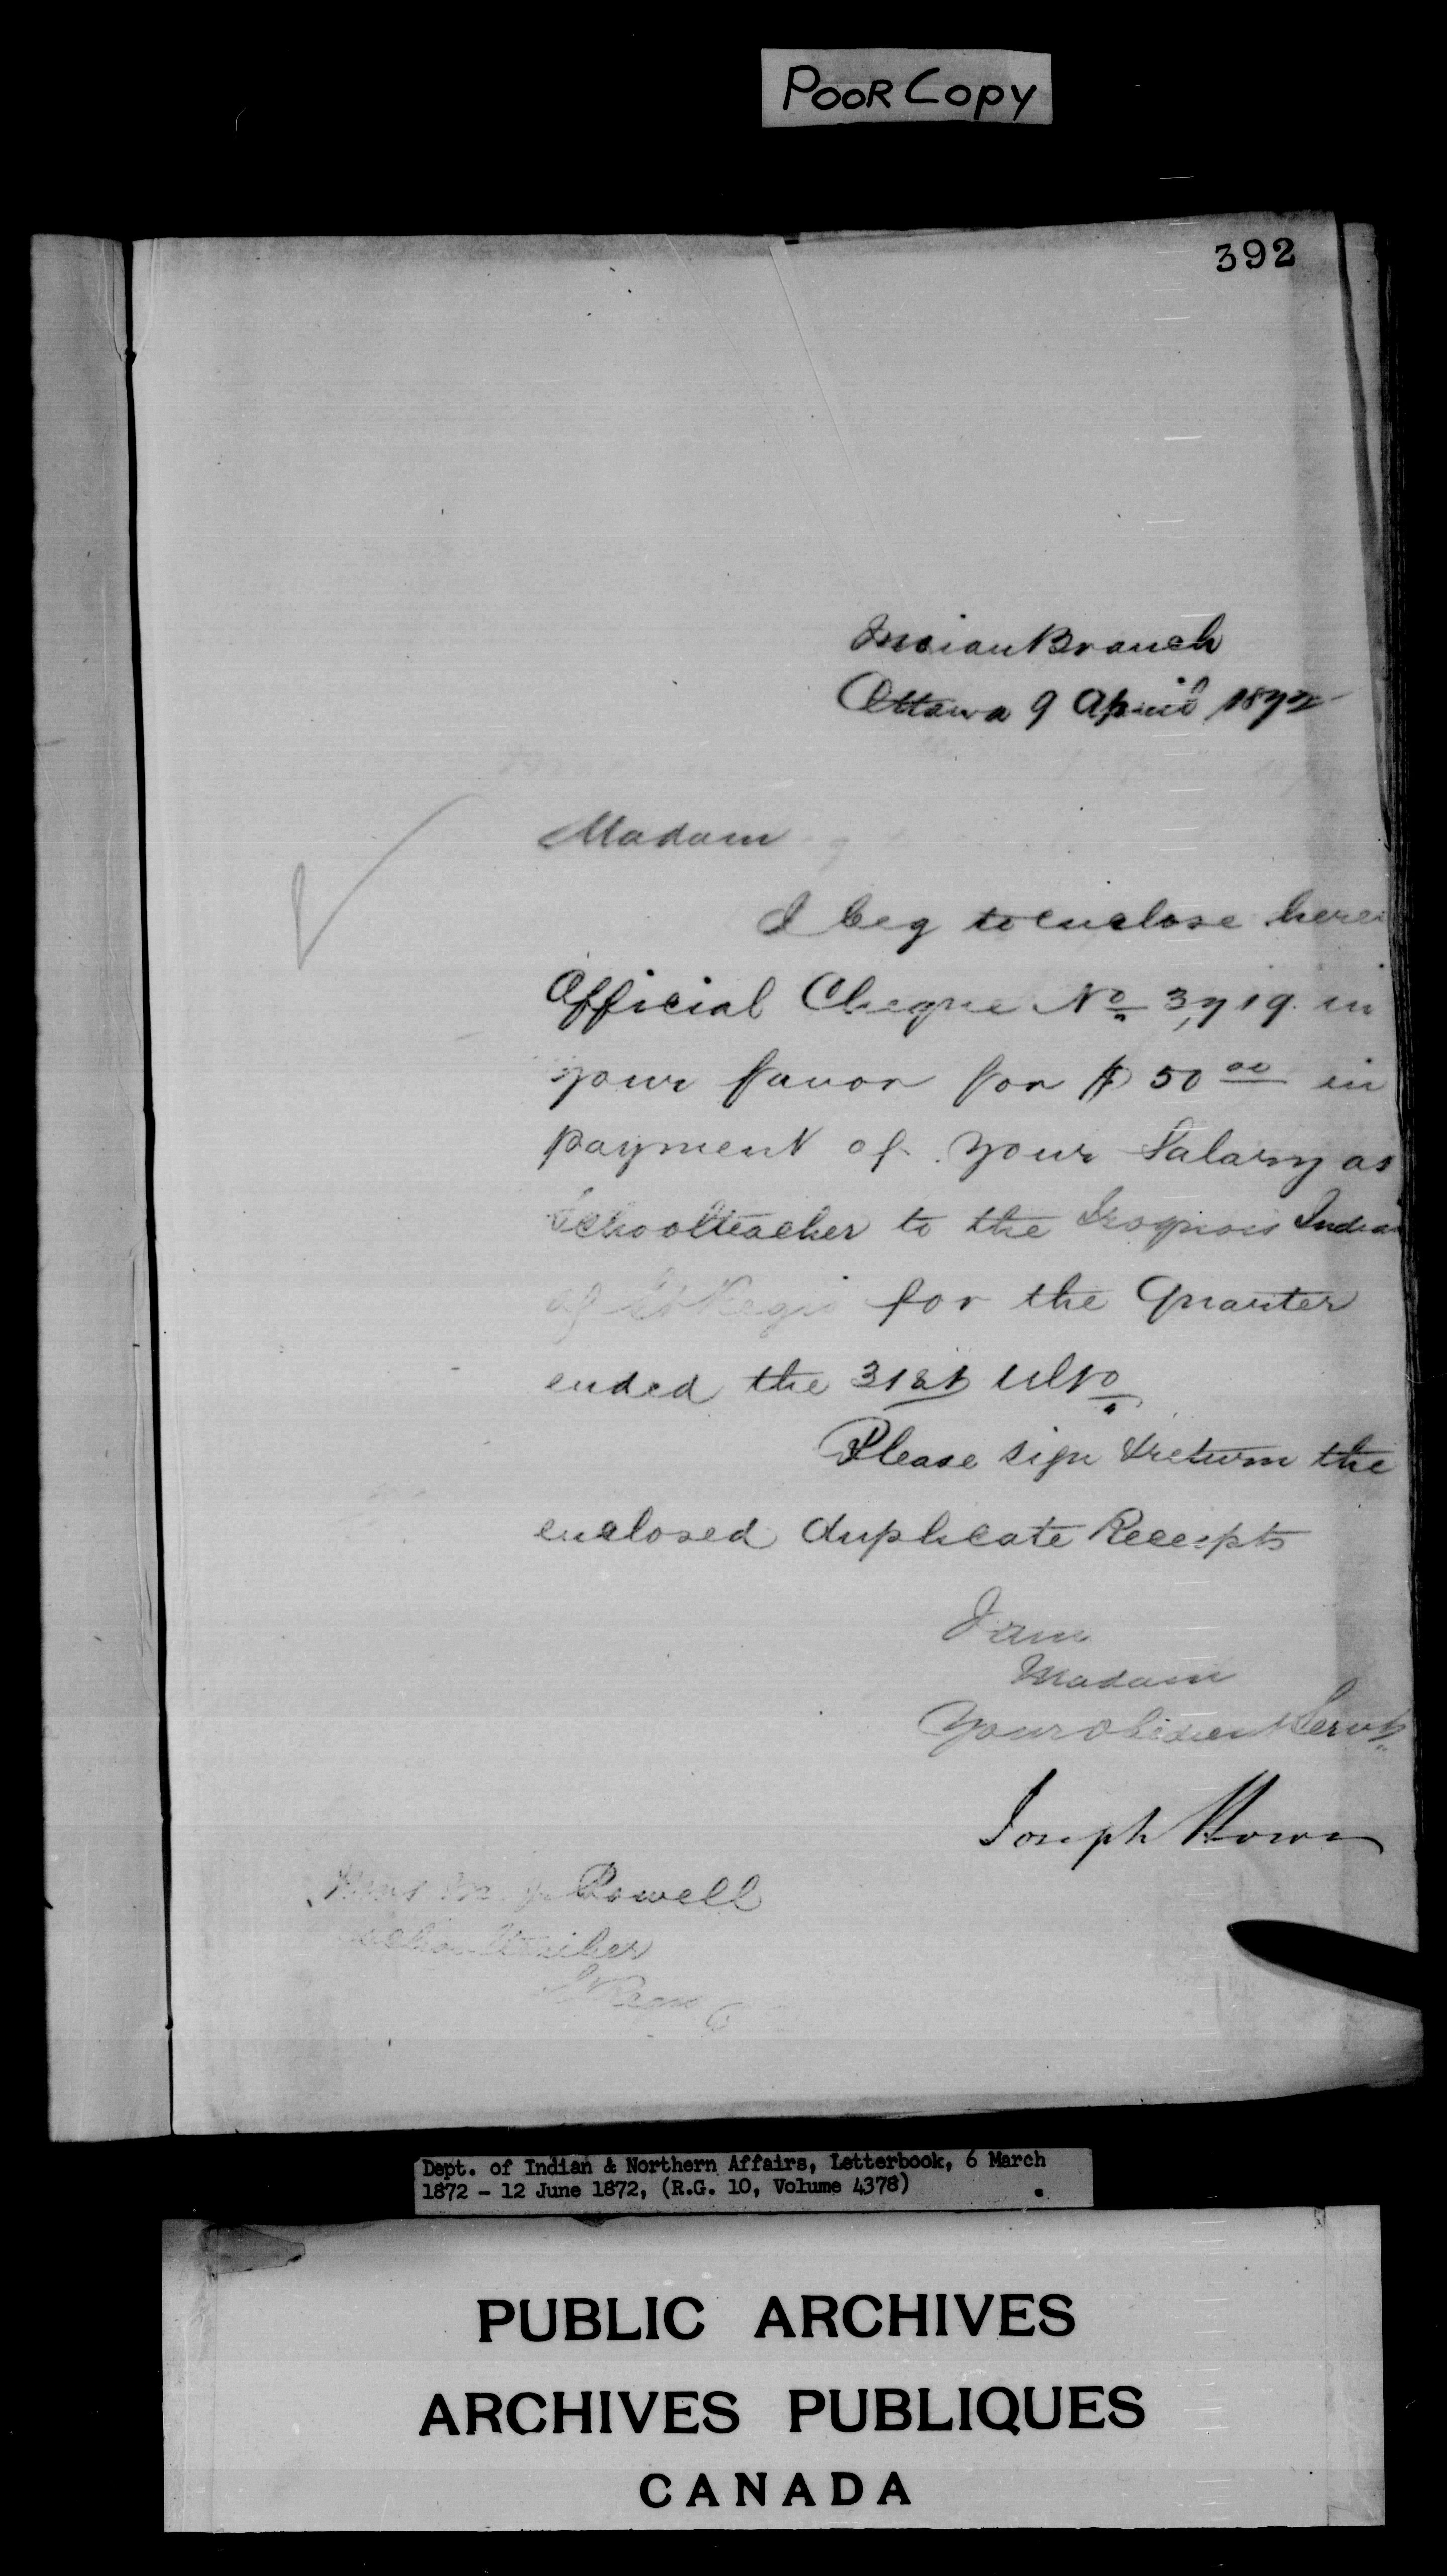 POOR Copy
392
Indian Branch
Ottawa 9 April 1872
Madam
I beg to enclose here
Official Cheque No 3719 in
your favor for $50 00 in
payment of your Salary as
Schoolteacher to the Iroquois Indian
of St Regis for the Quarter
ended the 31st Ulto
Please sign & return the
enclosed duplicate Receipts
I am
Madam
Your obedient Servt
Joseph Howe
Powell
Schoolteacher
St Regis
Dept. of Indian & Northern Affairs, Letterbook, 6 March
1872 - 12 June 1872, (R.G. 10, Volume 4378)
PUBLIC ARCHIVES
ARCHIVES PUBLIQUES
CANADA